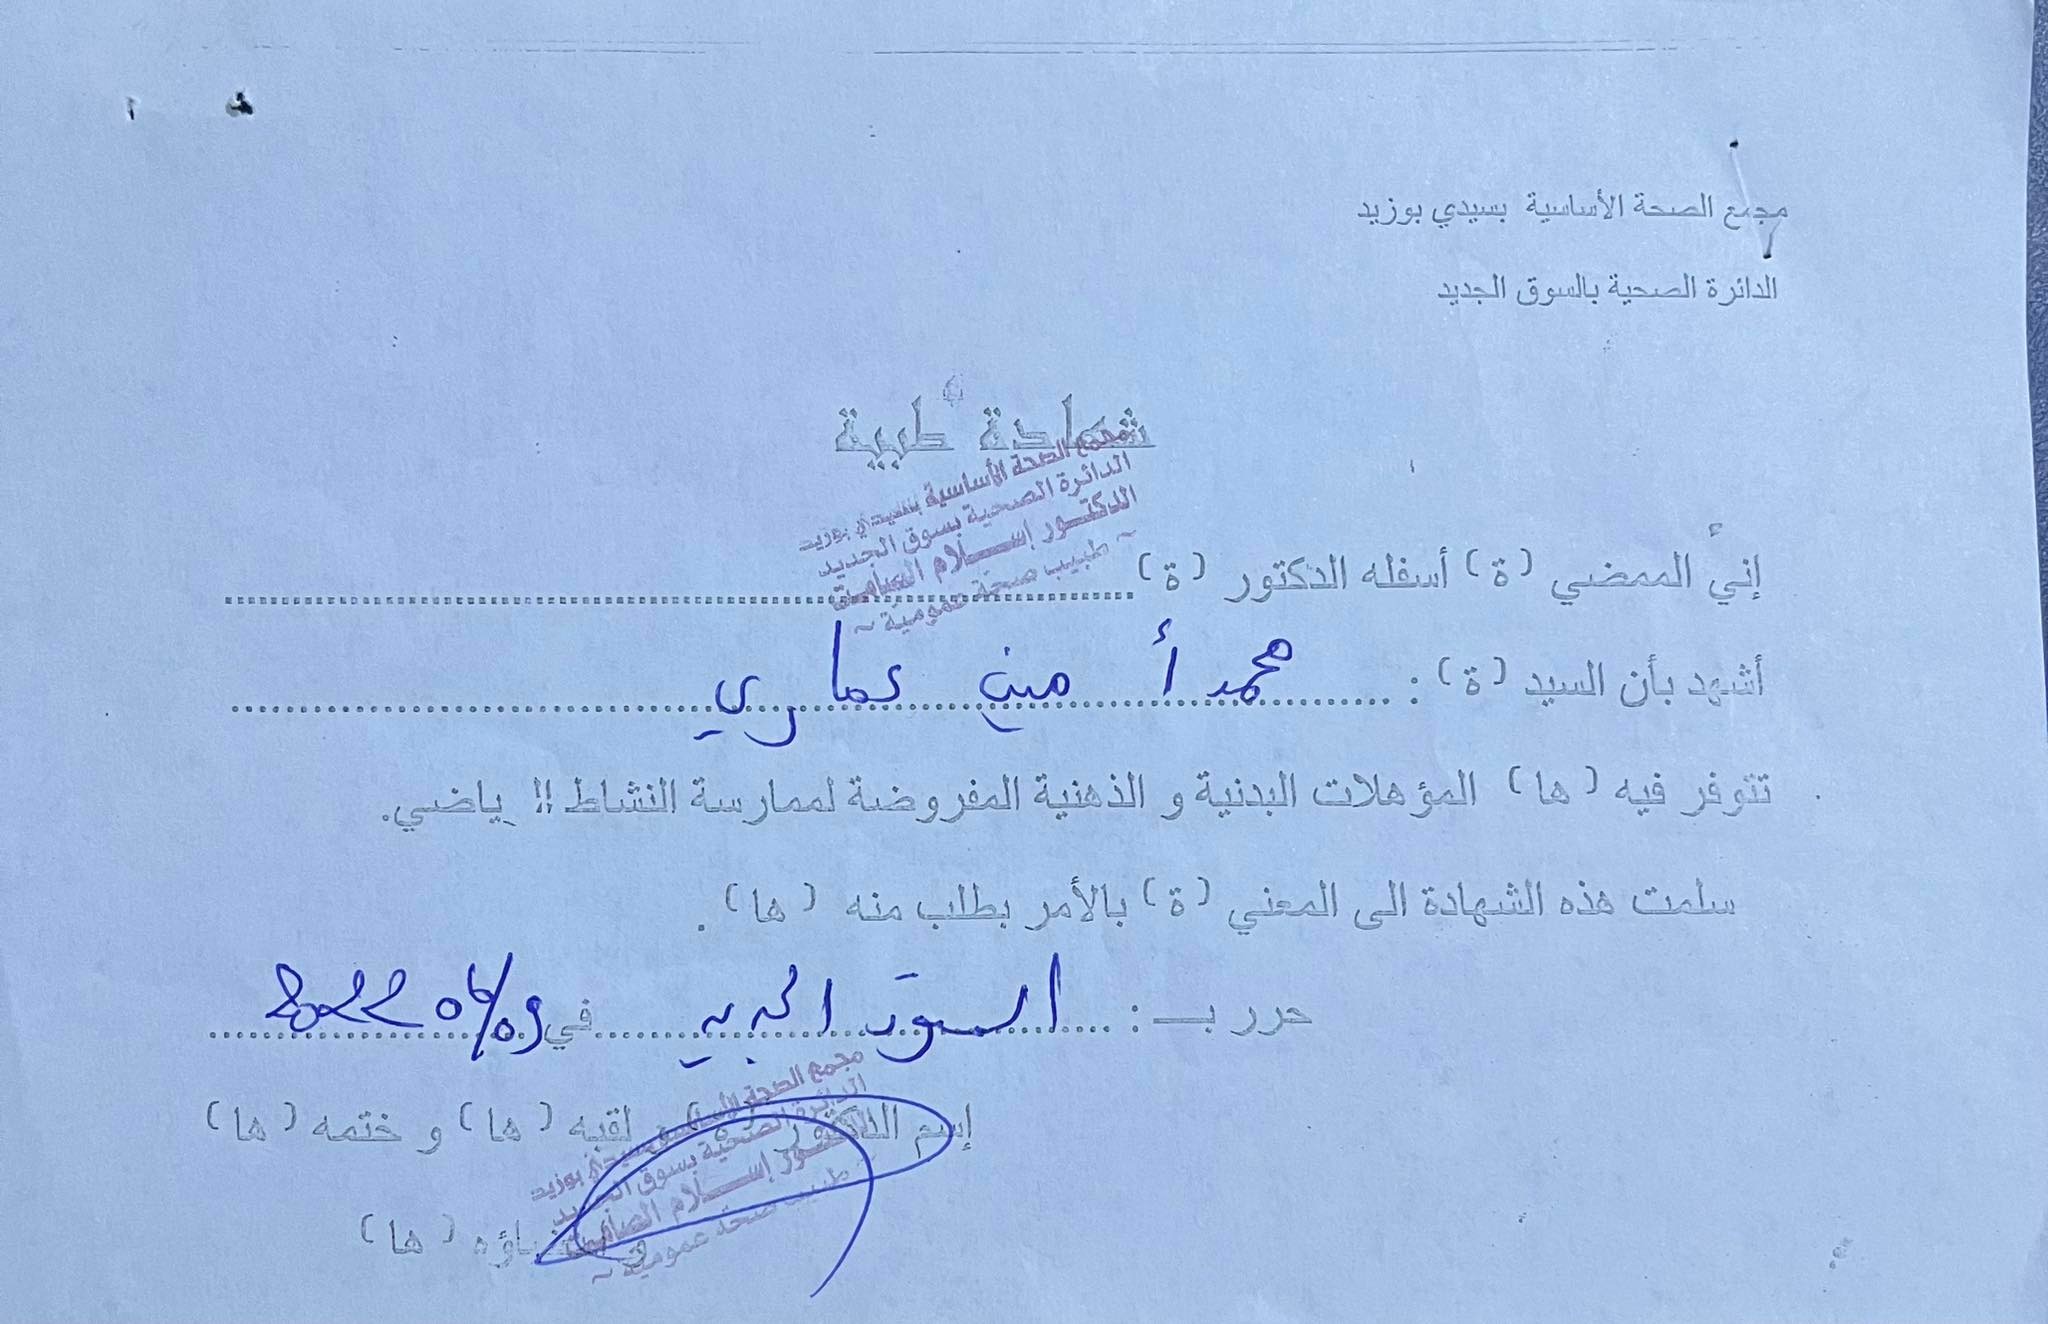 مجمع الصحة الأساسية بسيدي بوزيد
الدائرة الصحية بالسوق الجديد
شهادة طبية
مجمع الصحة الأساسية بسيدي بوزيد
الدائرة الصحية بسوق الجديد
الدكتور إسلام
~ طبيب صحة عمومية ~
إني الممضي (ة) أسفله الدكتور (ة)
أشهد بأن السيد (ة) : محمد أمين عماري
تتوفر فيه (ها) المؤهلات البدنية و الذهنية المفروضة لممارسة النشاط الرياضي.
سلمت هذه الشهادة الى المعني (ة) بالأمر بطلب منه (ها).
حرر بـ : السوق الجديد في 2022
إسم الدكتور لقبه (ها) و ختمه (ها)
مجمع الصحة الأساسية بسيدي بوزيد
الدائرة الصحية بسوق
إسلام
طبيب صحة عمومية ~
(ها)